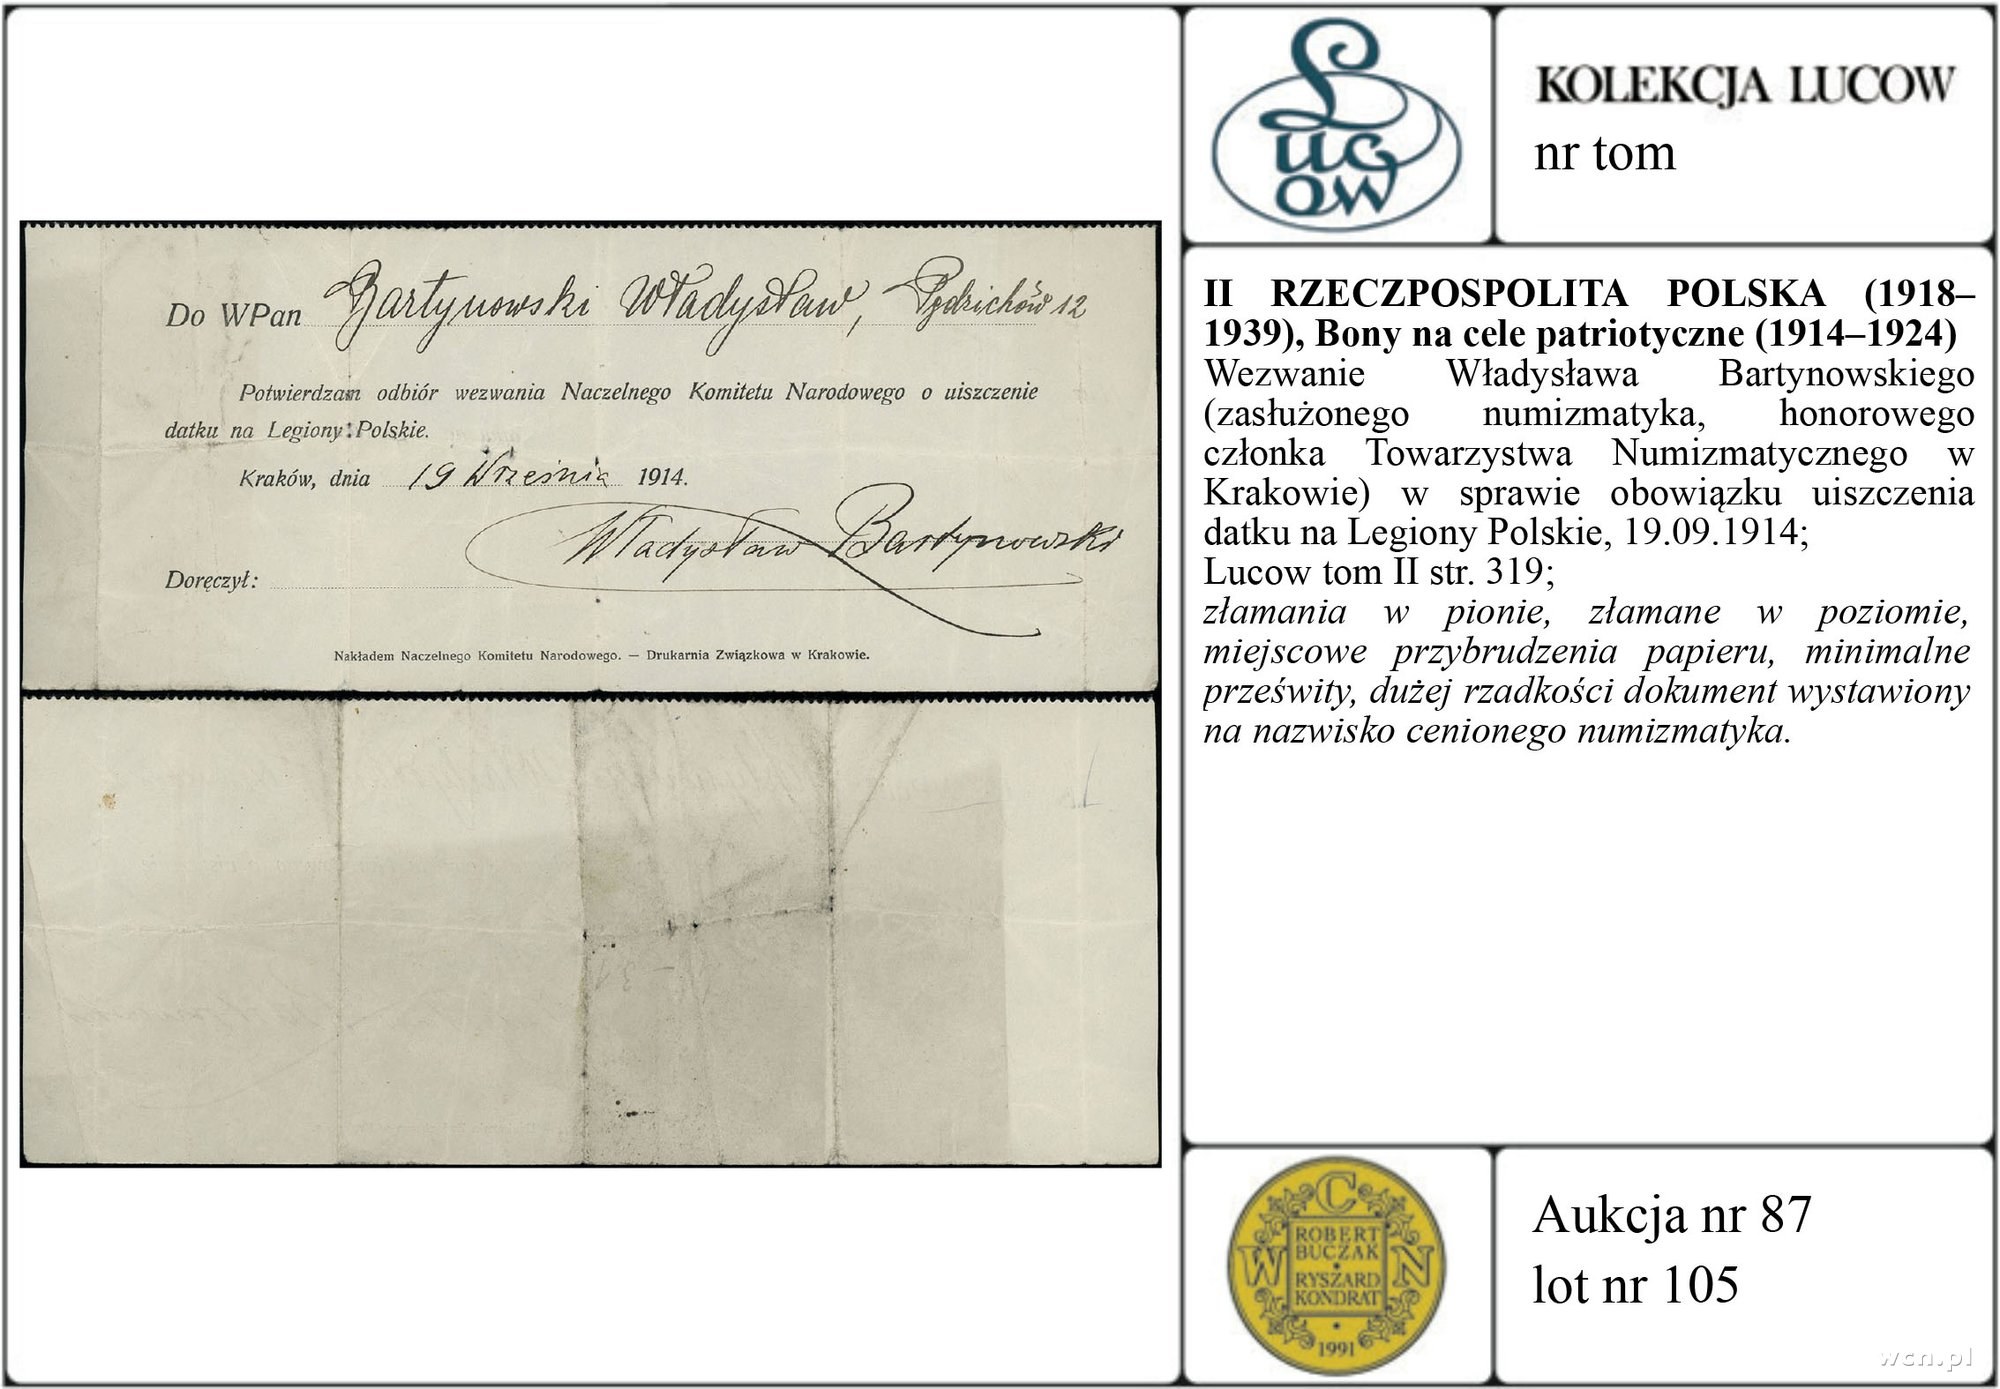 Do WPan Bartynowski Władysław, Pędzichów 12
Potwierdzam odbiór wezwania Naczelnego Komitetu Narodowego o uiszczenie
datku na Legiony Polskie.
Kraków, dnia 19 Września 1914.
Władysław Bartynowski
Doręczył:
Nakładem Naczelnego Komitetu Narodowego. — Drukarnia Związkowa w Krakowie.
Lucow
KOLEKCJA LUCOW
nr tom
II RZECZPOSPOLITA POLSKA (1918–
1939), Bony na cele patriotyczne (1914–1924)
Wezwanie Władysława Bartynowskiego
(zasłużonego numizmatyka, honorowego
członka Towarzystwa Numizmatycznego w
Krakowie) w sprawie obowiązku uiszczenia
datku na Legiony Polskie, 19.09.1914;
Lucow tom II str. 319;
złamania w pionie, złamane w poziomie,
miejscowe przybrudzenia papieru, minimalne
prześwity, dużej rzadkości dokument wystawiony
na nazwisko cenionego numizmatyka.
W C N
ROBERT
BUCZAK
RYSZARD
KONDRAT
1991
Aukcja nr 87
lot nr 105
wcn.pl